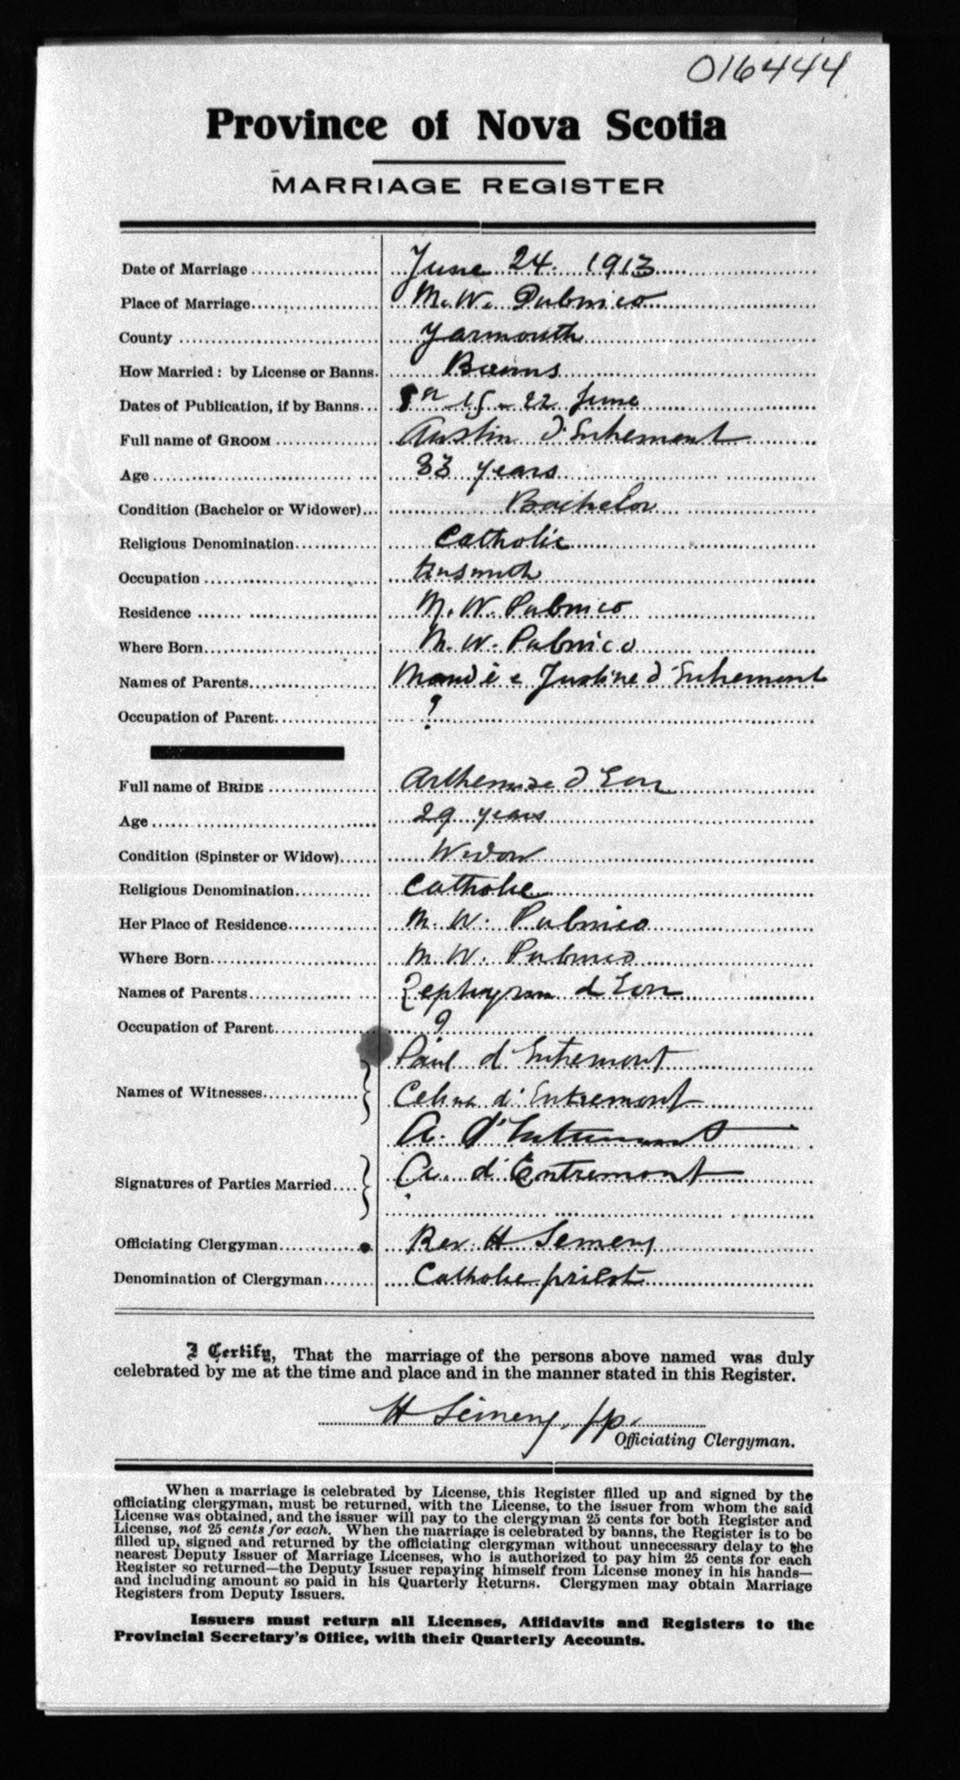 016444
Province of Nova Scotia
MARRIAGE REGISTER
Date of Marriage June 24. 1913
Place of Marriage M. W. Pubnico
County Yarmouth
How Married: by License or Banns. Banns
Dates of Publication, if by Banns 15 - 22 June
Full name of GROOM Austin d'Entremont
Age 33 years
Condition (Bachelor or Widower) Bachelor
Religious Denomination Catholic
Occupation tinsmith
Residence M. W. Pubnico
Where Born M. W. Pubnico
Names of Parents e Justine d'Entremont
Occupation of Parent ?
Full name of BRIDE Arthemise d Eon
Age 29 years
Condition (Spinster or Widow) Widow
Religious Denomination Catholic
Her Place of Residence M. W. Pubnico
Where Born M W. Pubnico
Names of Parents d Eon
Occupation of Parent ?
Paul d'Entremont
Names of Witnesses Celina d'Entremont
A. d'Entremont
Signatures of Parties Married A. d'Entremont
Officiating Clergyman Rev. H
Denomination of Clergyman Catholic priest
I Certify, That the marriage of the persons above named was duly
celebrated by me at the time and place and in the manner stated in this Register.
H
Officiating Clergyman.
When a marriage is celebrated by License, this Register filled up and signed by the
officiating clergyman, must be returned, with the License, to the issuer from whom the said
License was obtained, and the issuer will pay to the clergyman 25 cents for both Register and
License, not 25 cents for each. When the marriage is celebrated by banns, the Register is to be
filled up, signed and returned by the officiating clergyman without unnecessary delay to the
nearest Deputy Issuer of Marriage Licenses, who is authorized to pay him 25 cents for each
Register so returned—the Deputy Issuer repaying himself from License money in his hands—
and including amount so paid in his Quarterly Returns. Clergymen may obtain Marriage
Registers from Deputy Issuers.
Issuers must return all Licenses, Affidavits and Registers to the
Provincial Secretary's Office, with their Quarterly Accounts.